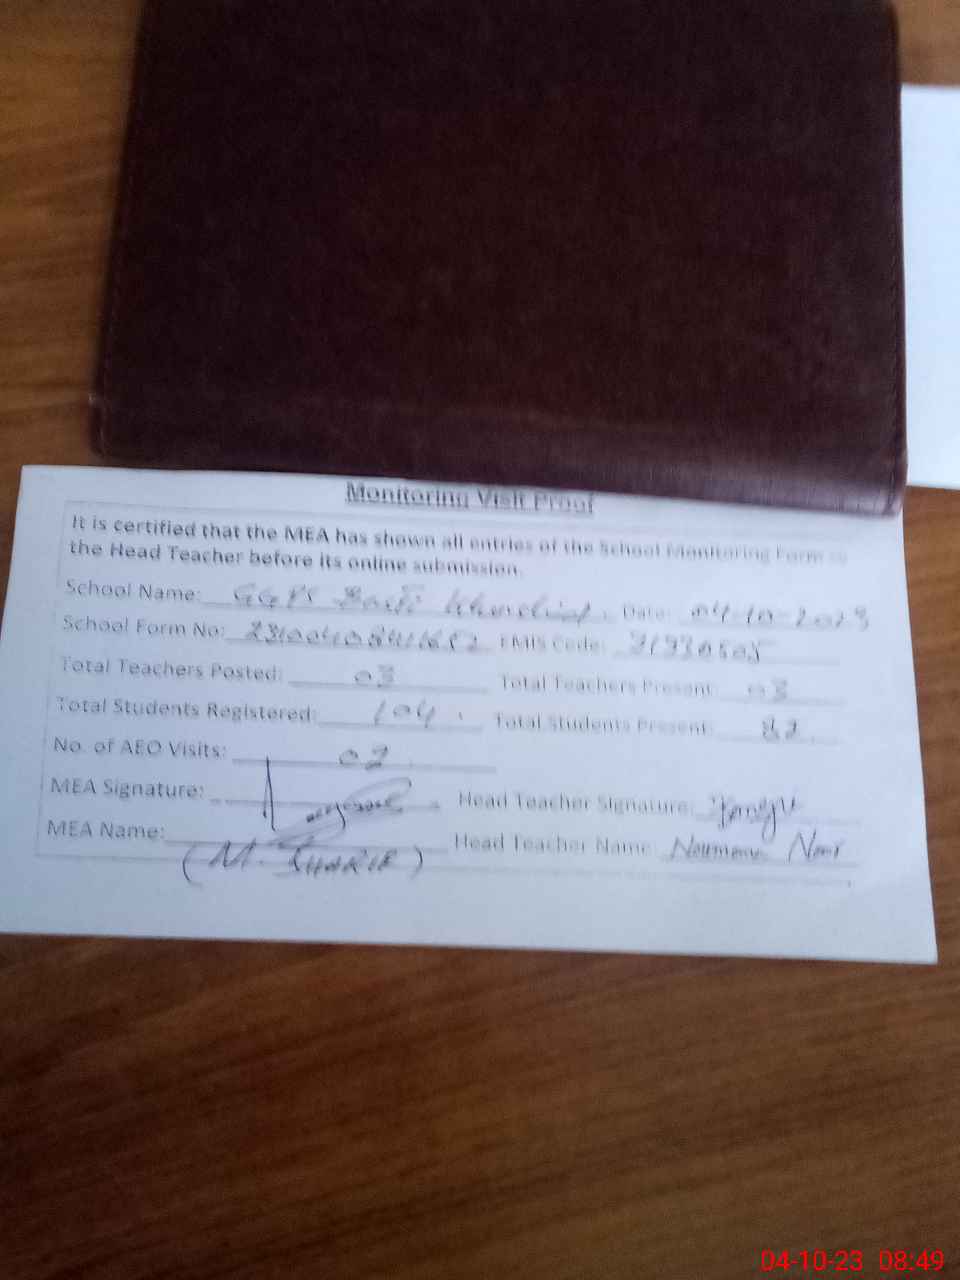 Monitoring Visit Proof
It is certified that the MEA has shown all entries of the School Monitoring Form to
the Head Teacher before its online submission.
School Name: GGPS Basti Date: 04-10-2023
School Form No: EMIS Code: 31330505
Total Teachers Posted: 03 Total Teachers Present: 03
Total Students Registered: 104 Total Students Present: 82
No. of AEO Visits: 02
MEA Signature: Head Teacher Signature:
MEA Name: (M. SHARIF) Head Teacher Name: Noor
04-10-23 08:49